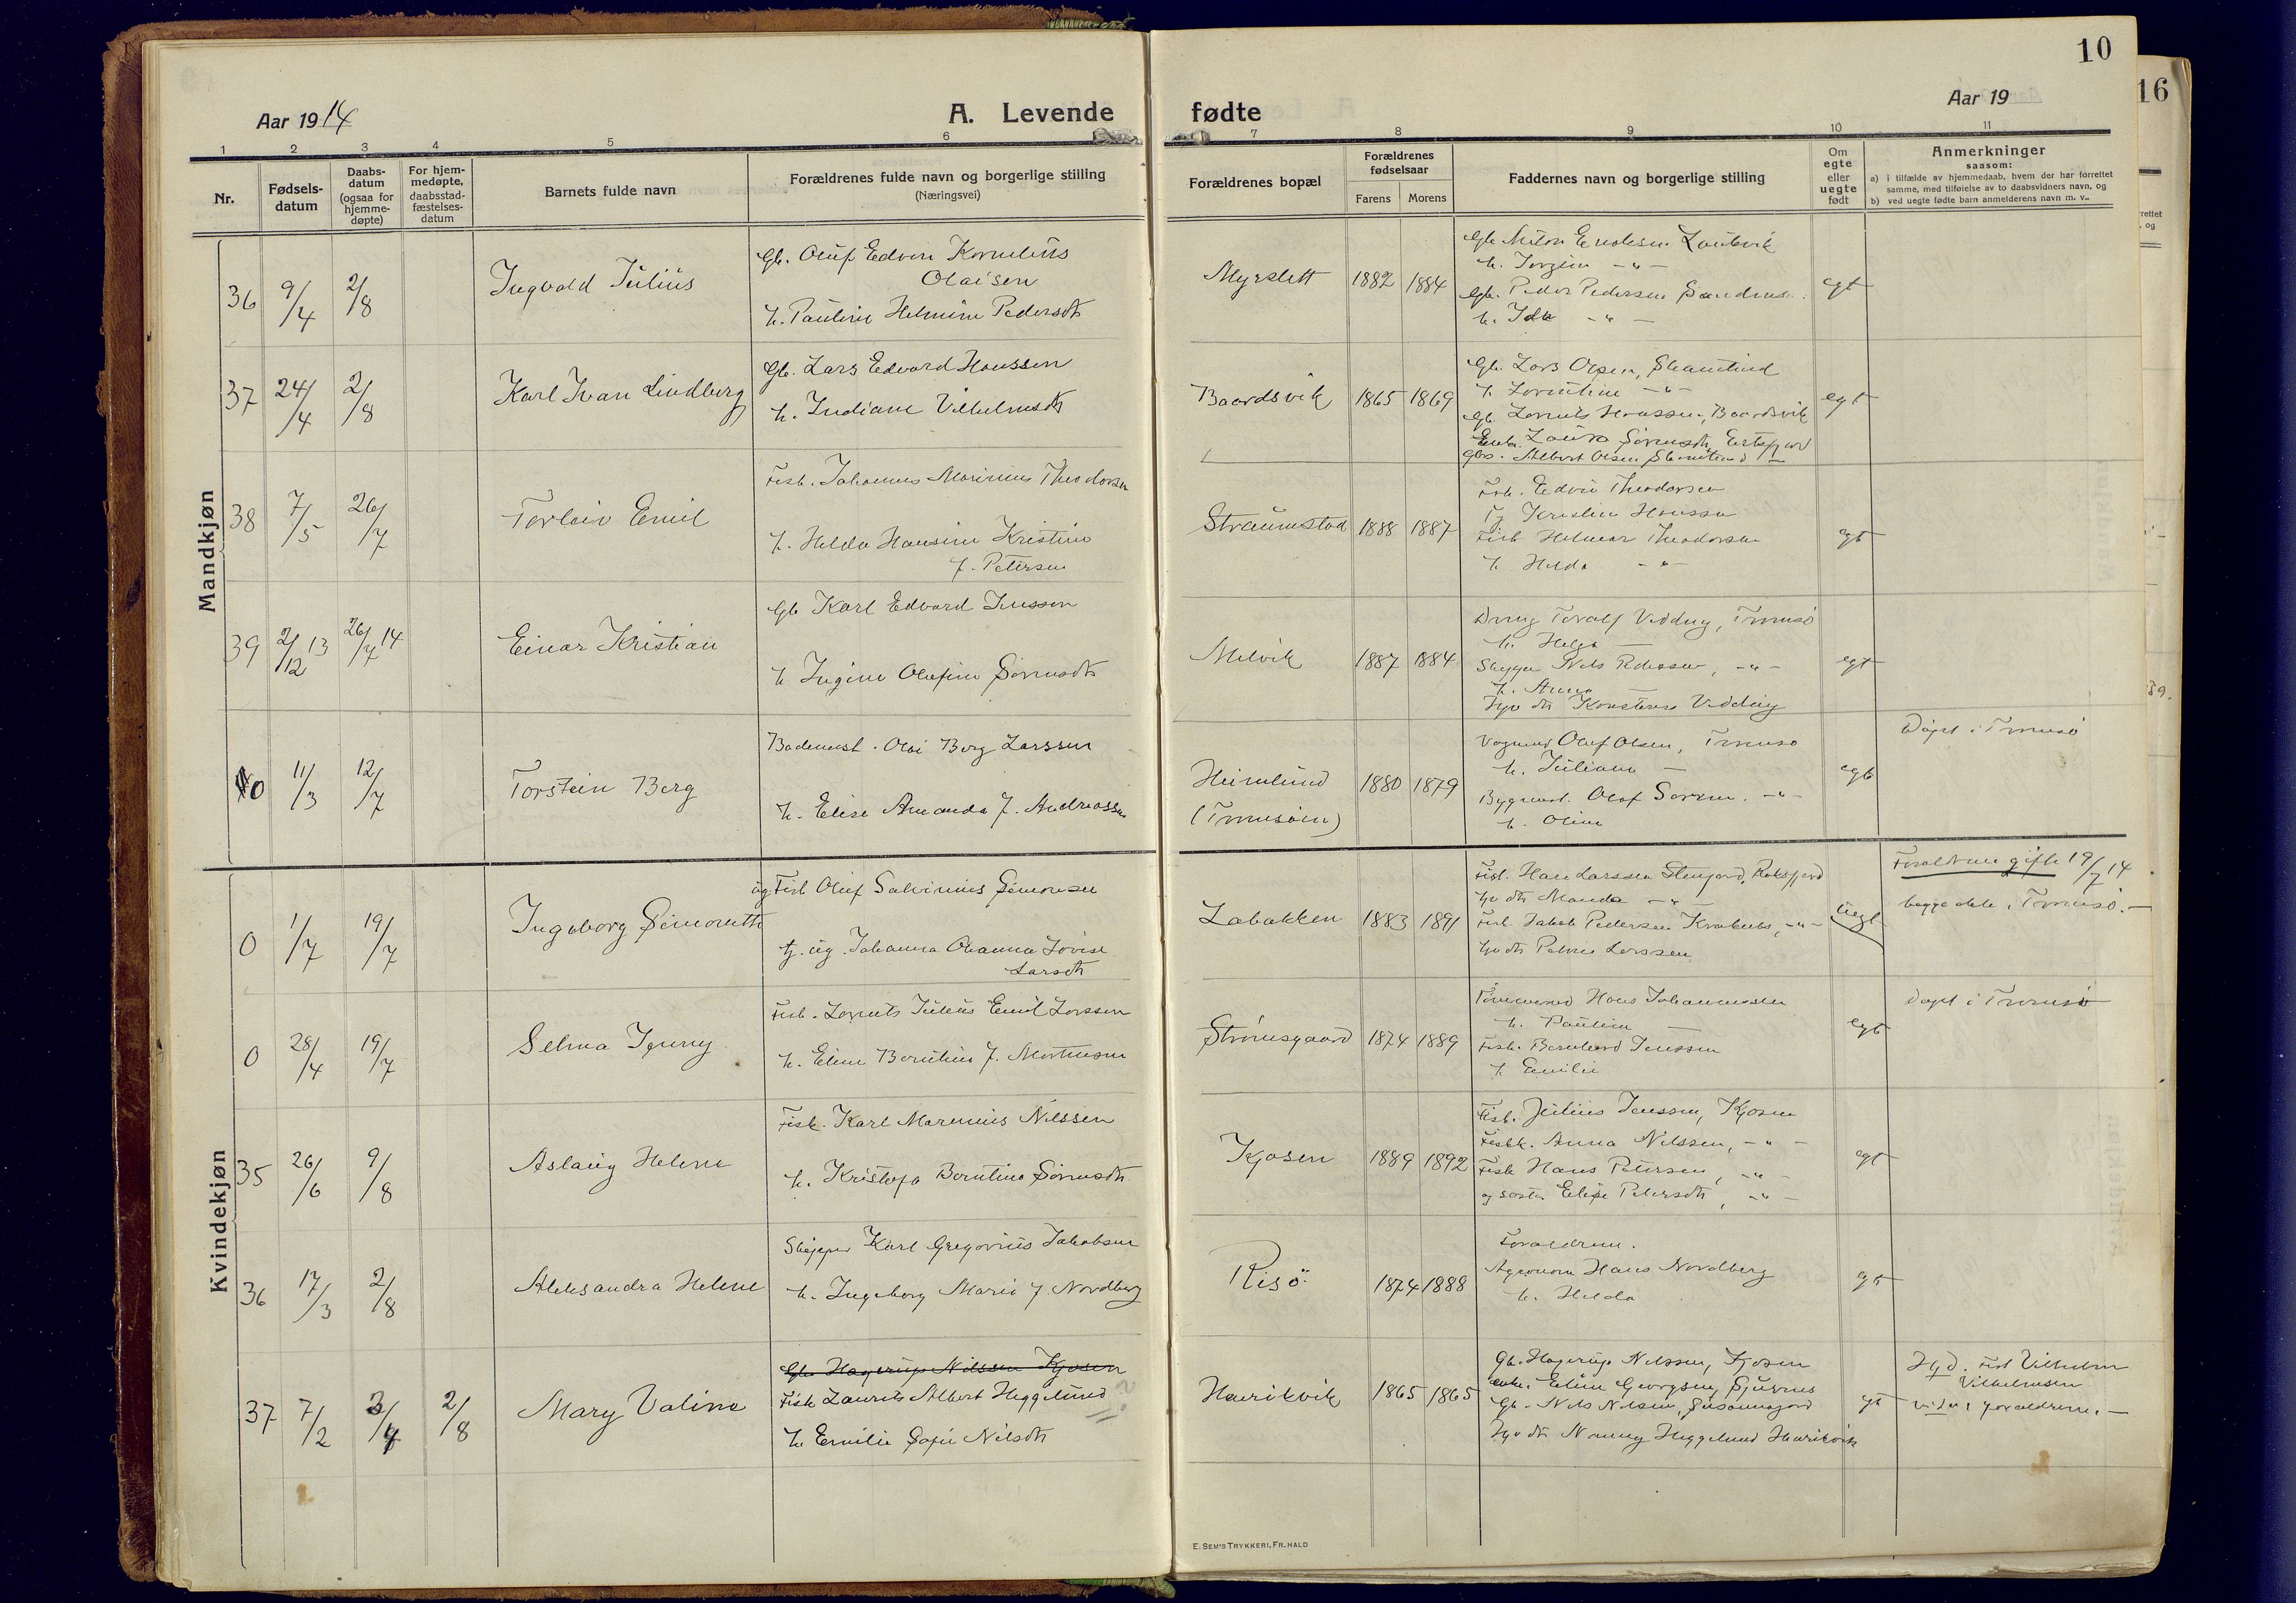 10
16
Aar 1914
A. Levende fødte
Aar 19
1 2 3 4 5 6 7 8 9 10 11
Nr.
Fødsels-
datum
Daabs-
datum
(ogsaa for
hjemme-
døpte)
For hjem-
medøpte,
daabsstad-
fæstelses-
datum
Barnets fulde navn
Forældrenes fulde navn og borgerlige stilling
(Næringsvei)
Forældrenes bopæl
Forældrenes
fødselsaar
Farens Morens
Faddernes navn og borgerlige stilling
Om
egte
eller
uegte
født
Anmerkninger
saasom:
a) i tilfælde av hjemmedaab, hvem der har forrettet
samme, med tilføielse av to daabsvidners navn, og
b) ved uegte fødte barn anmelderens navn m. v..
Mandkjøn
36 9/4 2/8 Ingvald Julius
Gb. Oluf Edvin Kornelius
Olaisen
h. Pauline Helmine Pedersdtr
Myrslett 1882 1884
h. Jørgine -"-
Gb. Peder Pedersen
h. Ida -"-
egt
37 24/4 2/8 Karl Ivan Lindberg
Gb. Lars Edvard Hanssen
h. Indiane Vilhelmsdtr
Baardsvik 1865 1869
Gb. Lars Olsen, Skamtind
h. Lorentine -"-
Gb. Lorents Hanssen, Baardsvik
Enke Laura Sørensdtr,
Gbs. Albert Olsen Skamtind
egt
38 7/5 26/7 Torleiv Emil
Fisk. Johannes Marinius Theodorsen
h. Helda Hansine Kristine
f. Petersen
Straumstad 1888 1887
Fisk. Edvin Theodorsen
Tj. Kristen Hanssen
Fisk Helmar Theodorsen
h Helda -"-
egt
39 2/12 13 26/7 14 Einar Kristian
Gb Karl Edvard Jenssen
h Ingine Olufine Sørensdtr
Melvik 1887 1884
Toralf Vedding, Tromsø
h. Helga —
Skipper Nils Pedersen, -"-
h. Anna —
Konstanse Vedding
egt
40 11/3 12/7 Torstein Berg
Bademest. Olai Berg Larssen
h. Elise Amanda f. Andreassen
Heimlund
(Tromsøen)
1880 1879
Vognmd Oluf Olsen, Tromsø
h. Juliane —
Bygmest. Olaf -"-
h. Oline
egt
Døpt i Tromsø
Kvindekjøn
0 1/7 19/7 Ingeborg
ug Fisk Oluf Salvinius Simonsen
tj. ug. Johanna Ohanna Lovise
Larsdtr
Labakken 1883 1891
Fisk. Hans Larssen
Manda -"-
Fisk. Jakob Pedersen -"-
Larssen
uegt
Forældrene gifte 19/7 14
begge dele i Tromsø. —
0 28/4 19/7 Selma Jenny
Fisk. Lorents Julius Emil Larssen
h. Eline Berntine f. Mortensen
Strømsgaard 1874 1889
Hans Johannessen
h. Pauline —
Fisk. Bernhard Jenssen
h. Emilie
egt
Døpt i Tromsø
35 26/6 9/8 Aslaug Helene
Fisk. Karl Marenius Nilssen
h. Kristofa Berntine Sørensdtr
Kjosen 1889 1892
Fisk. Julius Jenssen, Kjosen
Anna Nilssen, -"-
Fisk Hans Petersen, -"-
og søster Elise Petersdtr, -"-
egt
36 17/3 2/8 Aleksandra Helene
Skipper Karl Gregorius Jakobsen
h. Ingeborg Marie f. Nordberg
Risø 1874 1888
Forældrene.
Agronom Hans Nordberg
h. Helda
egt
37 7/2 3/4 2/8 Mary Valine
Gb. Hagerup Nilssen Kjosen
Fisk Laurits Albert Heggelund
h Emilie Sofie Nilsdtr
Haarikvik 1865 1865
Gb. Hagerup Nilssen, Kjosen
Enke. Eline Georgsen,
Gb. Nils Nilsen,
Nanny Heggelund Haarikvik
egt
Hjd. Fisk Vilhelm
Vilhelmsen
vidner forældrene. —
E. SEM'S TRYKKERI, FR. HALD